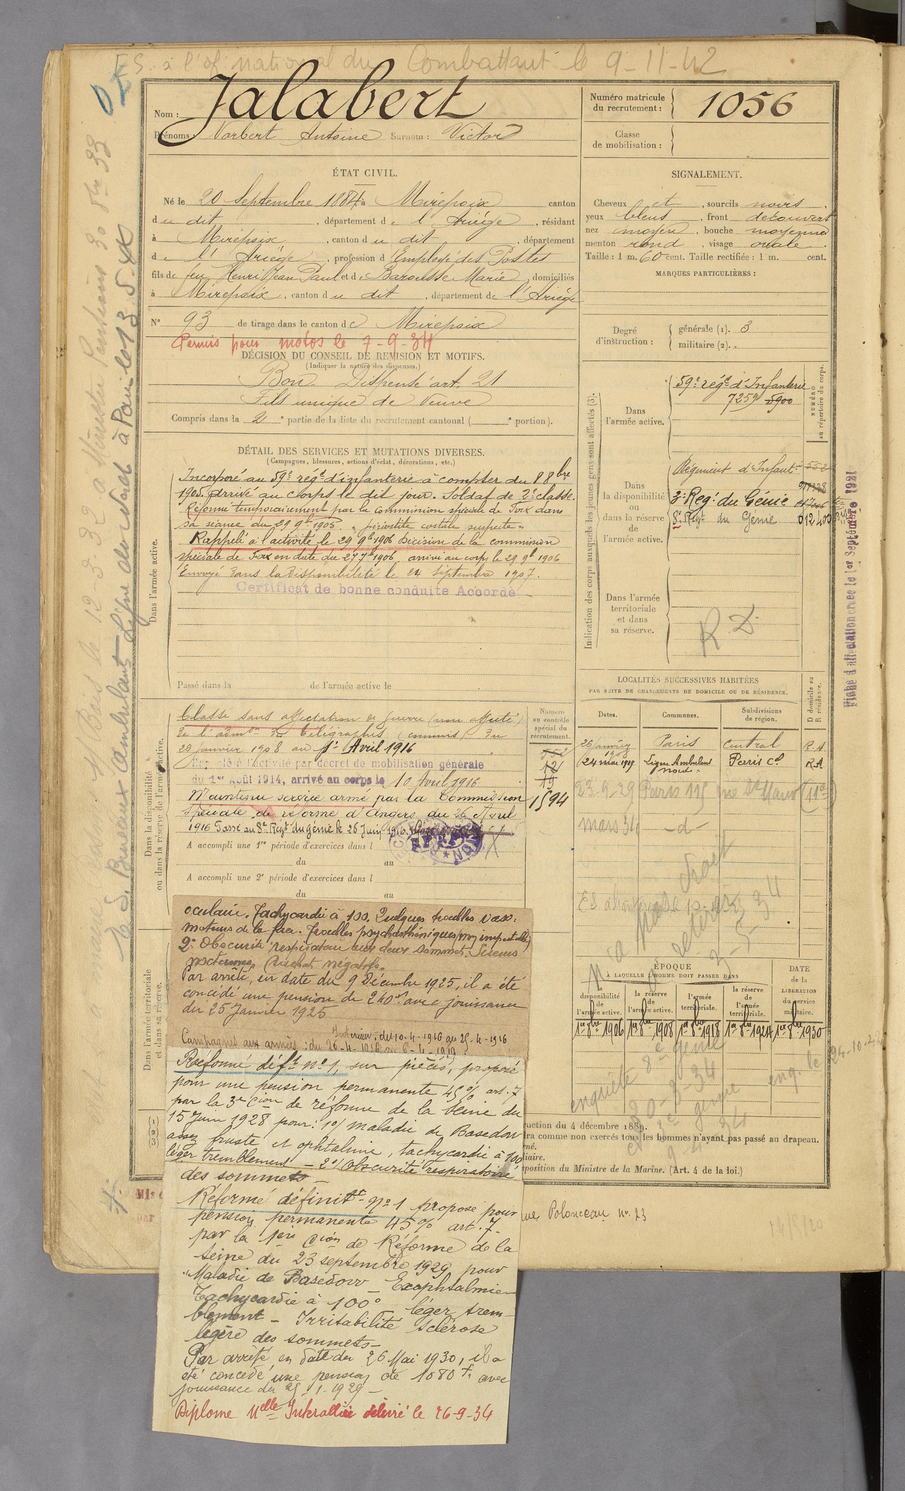 E.S. à l'of. national du Combattant le 9-11-42
Nom : Jalabert
Prénoms : Norbert Antoine Surnoms : Victor
Numéro matricule du recrutement : 1056
Classe de mobilisation :
ÉTAT CIVIL.
Né le 20 Septembre 1884, à Mirepoix canton
du dit, département de l'Ariège, résidant
à Mirepoix, canton du dit, département
de l'Ariège, profession d'Employé des Postes
fils de feu Henri Jean Paul et de Barousse Marie, domiciliés
à Mirepoix, canton du dit, département de l'Ariège
N° 93 de tirage dans le canton de Mirepoix
Permis pour motos le 7-9-34
DÉCISION DU CONSEIL DE REVISION ET MOTIFS.
(Indiquer la nature des dispenses.)
Bon Dispensé art. 21
Fils unique de veuve
Compris dans la 2e partie de la liste du recrutement cantonal ( e portion).
SIGNALEMENT.
Cheveux et, sourcils noirs
yeux bleus, front découvert
nez moyen, bouche moyenne
menton rond, visage ovale.
Taille : 1 m. 60 cent. Taille rectifiée : 1 m. cent.
MARQUES PARTICULIÈRES :
Degré d'instruction : générale (1). 3
militaire (2).
DÉTAIL DES SERVICES ET MUTATIONS DIVERSES.
(Campagnes, blessures, actions d'éclat, décorations, etc.)
Incorporé au 59e régt d'infanterie à compter du 8 8bre
1905. Arrivé au corps le dit jour. Soldat de 2e classe.
Réformé temporairement par la Commission spéciale de Foix dans
sa séance du 29 9bre 1905. "périostite costale suspecte"
Rappelé à l'activité le 29 9bre 1906 Décision de la commission
spéciale de Foix en date du 27 7bre 1906 arrivé au corps le 29 9bre 1906
Envoyé dans la Disponibilité le Septembre 1907.
Certificat de bonne conduite Accordé
Passé dans la de l'armée active le
Dans l'armée active.
Indication des corps auxquels les jeunes gens sont affectés (3).
Dans l'armée active. 59e régt d'Infanterie
7259 5900
NUMÉRO au répertoire du corps.
Dans la disponibilité ou dans la réserve de l'armée active.
Régiment d'Infant
2e Reg. du Génie
8e Regt du Génie
Dans l'armée territoriale et dans sa réserve.
R Z.
Fiche d'affectation créée le 1er Septembre 1921
LOCALITÉS SUCCESSIVES HABITÉES
PAR SUITE DE CHANGEMENTS DE DOMICILE OU DE RÉSIDENCE.
Dates. Communes. Subdivisions de région. D domicile ou R résidence.
1908 Paris Central R.A
24 mai 1919 Ligne Ambulant nord Paris Cl RA
23-9-29 Paris 115 rue St Maur (11e)
mars 34 -d-
Dans la disponibilité ou dans la réserve de l'armée active.
Classé sans affectation de guerre (non affecté)
de l'admon des Télégraphes (commis) du
20 janvier 1908 au 1er Avril 1916
Rappelé à l'activité par décret de mobilisation générale
du 1er Août 1914, arrivé au corps le 10 Avril 1916
Maintenu service armé par la Commission
spéciale de réforme d'Angers du Avril
1916 Passé au 8e Regt du génie le 26 Juin 1916
Numéro au contrôle spécial du recrutement.
12
19
1594
A accompli une 1re période d'exercices dans l
du au
A accompli une 2e période d'exercices dans l
du au
Dans l'armée territoriale et dans sa réserve.
oculaire. Tachycardie à 100. Quelques troubles vaso-
moteurs de la face. Troubles psychasthéniques
2° Obscurité respiratoire aux deux sommets.
Par arrêté, en date du 9 Décembre 1925, il a été
concédé une pension de 240 frs avec jouissance
du 25 Janvier 1925
Intérieur : du 10-4-1916 au 25-4-1916
Campagne aux armées : du 26-4-1916 au
Réformé déft n° 1, sur pièces, proposé
pour une pension permanente 45% art. 7
par la 3e Cion de réforme de la Seine du
15 Juin 1928 pour : 1°/ maladie de Basedow
assez fruste et ophtalmie, tachycardie à 100
léger tremblement — 2°/ obscurité respiratoire
des sommets —
Réformé définitt n° 1 proposé pour
pension permanente 45% art. 7.
par la 1ère Cion de Réforme de la
Seine du 23 septembre 1929 pour
"Maladie de Basedow — Exophtalmie
Tachycardie à 100° — léger trem-
blement — Irritabilité sclérose
légère des sommets —
Par arrêté en date du 26 Mai 1930, il a
été concédé une pension de 1080 f. avec
jouissance du 25-1-1929 —
Diplome Melle Interalliée délivré le 26-9-34
ÉPOQUE
À LAQUELLE L'HOMME DOIT PASSER DANS
la disponibilité de l'armée active. la réserve de l'armée active. l'armée territoriale. la réserve de l'armée territoriale.
DATE de la LIBÉRATION du service militaire.
1er 8bre 1906 1er 8bre 1908 1er 8bre 1918 1er 8bre 1924 1er 8bre 1930
enquête 8e génie
20-3-34
uction du 4 décembre 1889.
ra comme non exercés tous les hommes n'ayant pas passé au drapeau.
position du Ministre de la Marine. (Art. 4 de la loi.)
rue Polonceau n° 73